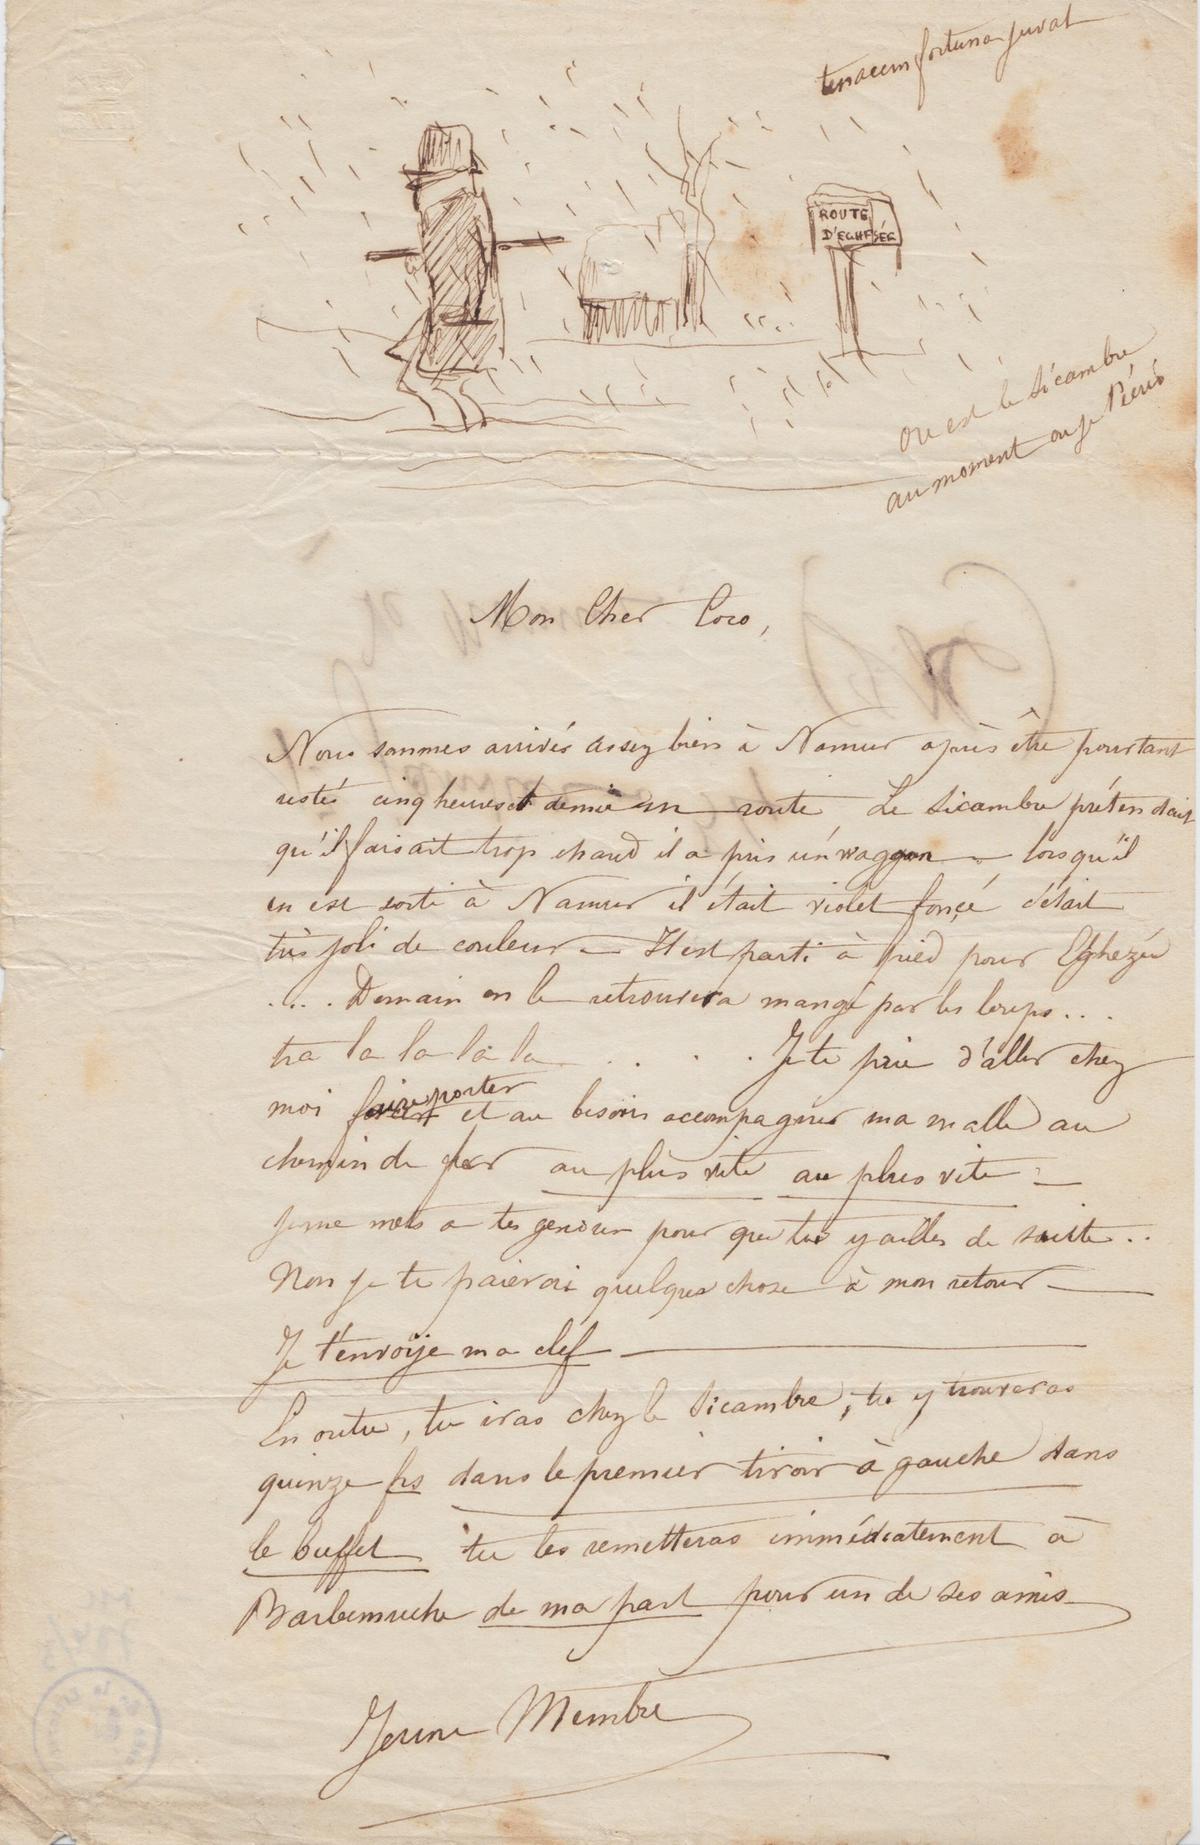 tenacem fortuna juvat
ROUTE
D'EGHESÉE
Ou est le Sicambre
au moment ou je t'écris
Mon Cher Coco,
Nous sommes arrivés assez bien à Namur après être pourtant
restés cinq heures et demie en route Le Sicambre prétendait
qu'il faisait trop chaud il a pris un waggon — lorsqu'il
en est sorti à Namur il était violet foncé c'était
très joli de couleur — Il est parti à pied pour Eghezée
.... Demain on le retrouvera mangé par les loups...
tra la la la la . . . . Je te prie d'aller chez
moi faire porter et au besoin accompagner ma malle au
chemin de fer au plus vite au plus vite —
Je me mets a tes genoux pour que tu y ailles de suite..
Non je te paierai quelque chose à mon retour —
Je t'envoije ma clef —
En outre, tu iras chez le Sicambre, tu y trouveras
quinze frs dans le premier tiroir à gauche dans
le buffet tu les remetteras immédiatement à
Barbemuche de ma part pour un de ses amis
Jeune Membre